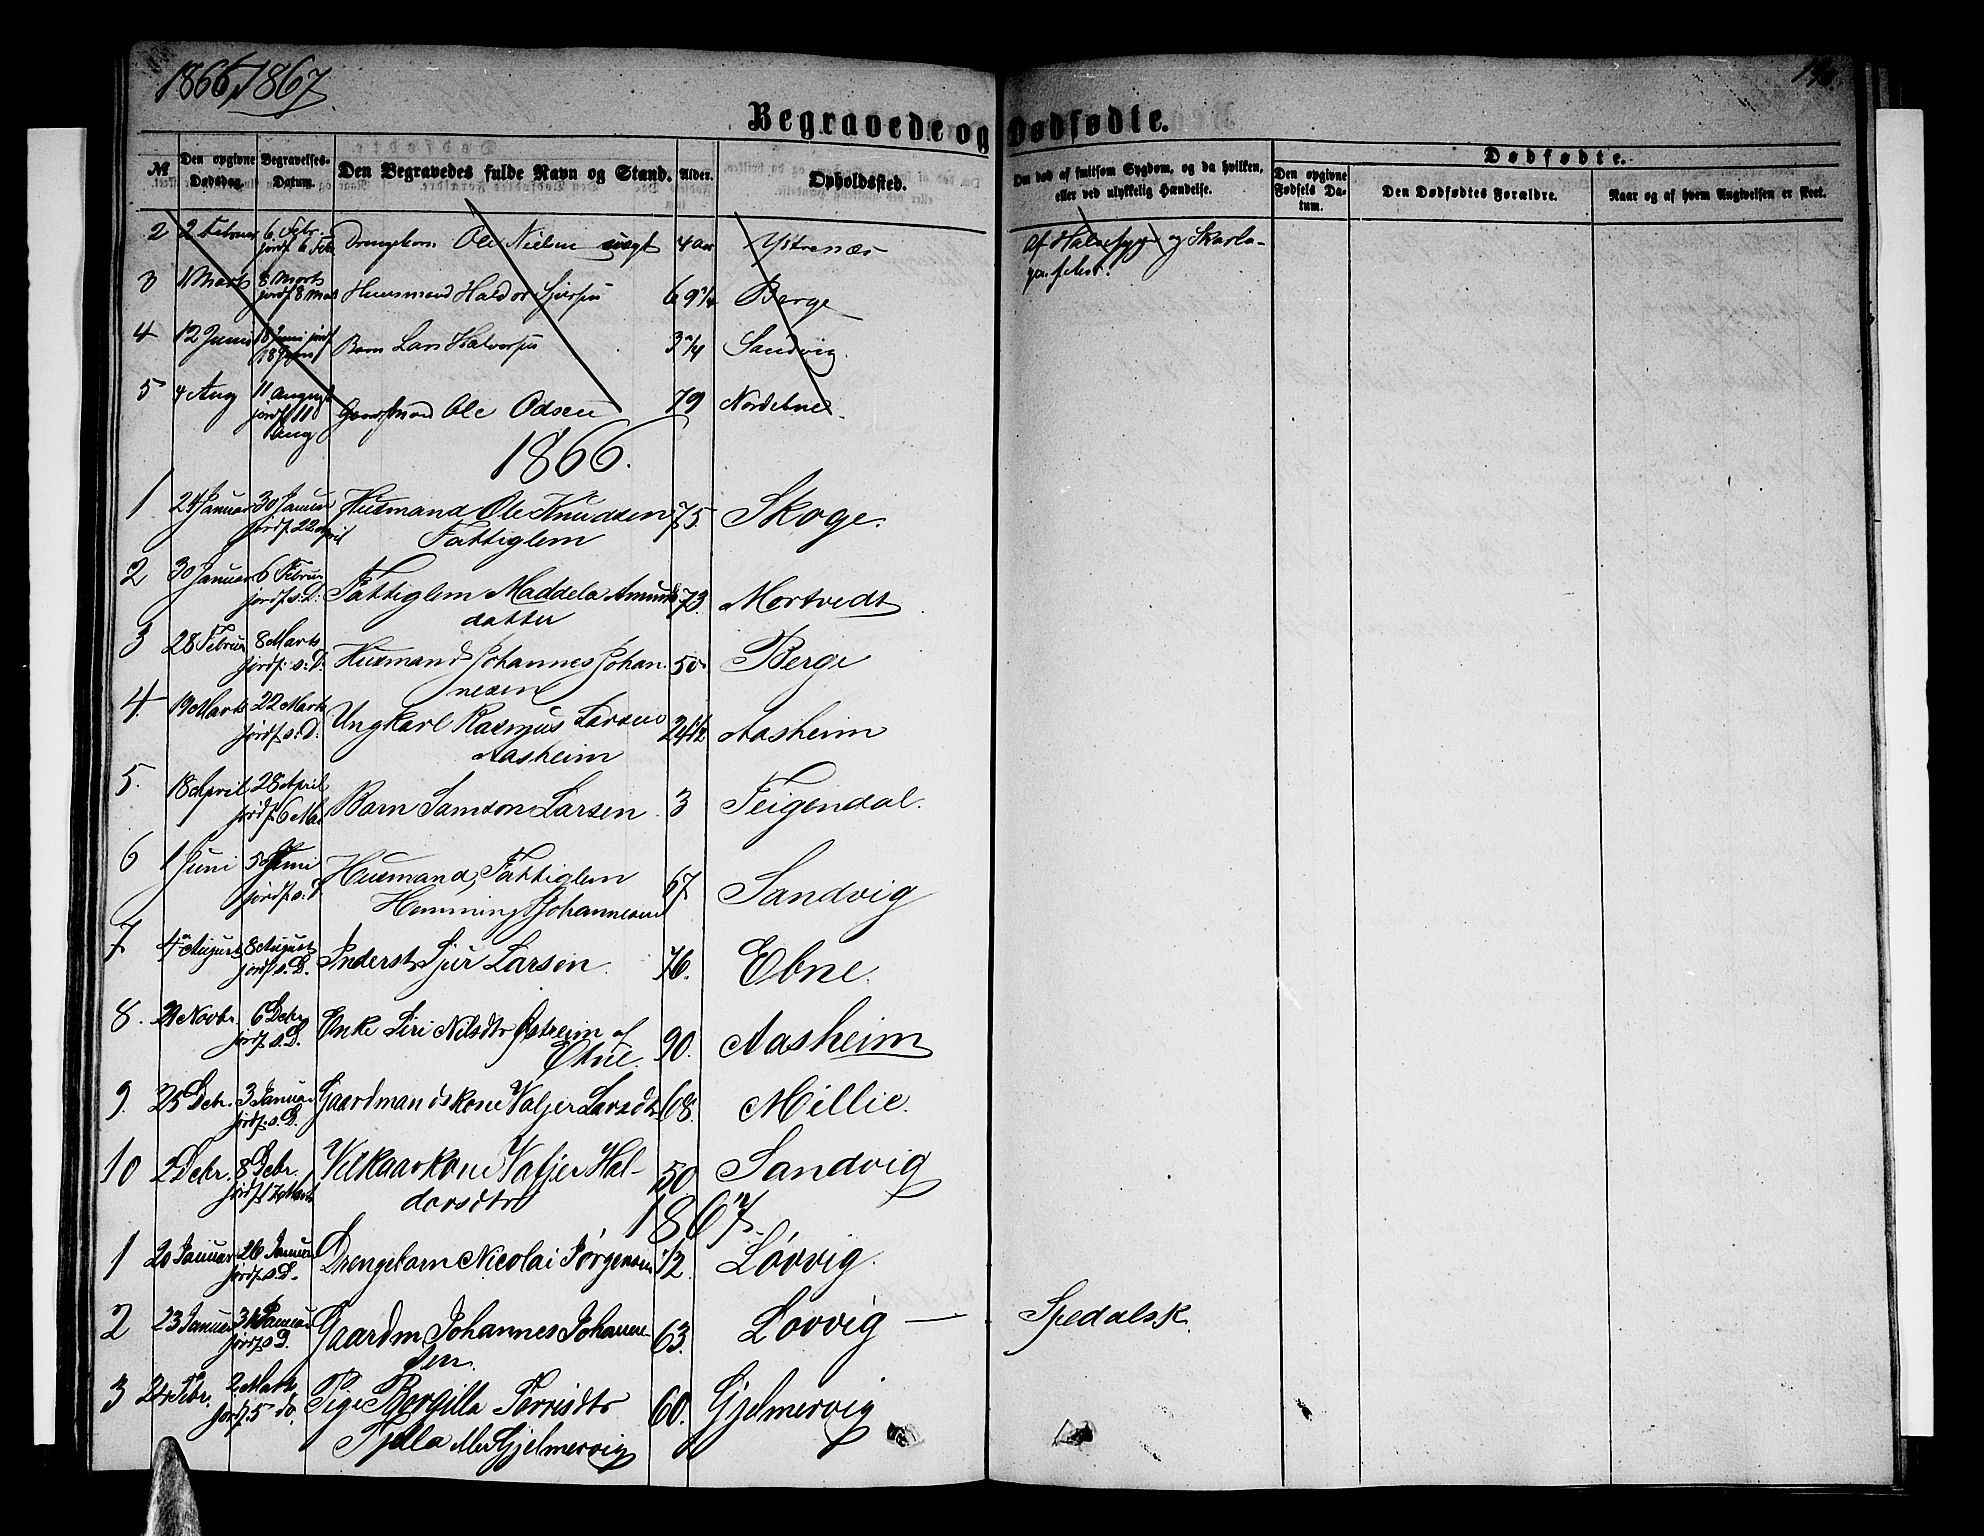 1866, 1867.
Begravede og Dødfødte.
№ Den opgivne Dødsdag. Begravelses-Datum. Den Begravedes fulde Navn og Stand. Alder. Opholdssted. Om død af smitsom Sygdom, og da hvilken, eller ved ulykkelig Hændelse. Dødfødte. Den opgivne Fødsels Datum. Den Dødfødtes Forældre. Naar og af hvem Angivelsen er skeet.
2 2 Februar 6 Febr. jordf 6 Feb Drengebarn Ole Nielsen 4 aar Ystrenæs af Halssyge og Skarla-
gensfeber.
3 1 Marts 8 Marts jordf 8 Mar Huusmand Haldor 69 1/4 Berge
4 12 Juni 18 Juni jordf 18 Juni Barn Lars Halvorsen 3 1/4 Sandvig.
5 4 Aug 11 August jordf 11 Aug Gaardmand Ole Odsen 79 Nordebne.
1866.
1 24 Januar 30 Januar jordf. 22 April Husmand Ole Knudsen 75. Skoge.
Fattiglem
2 30 Januar 6 Februar jordf. s: D: Fattiglem Maddela Amunds 73. Mortvedt
datter
3 28 Februar 8 Marts jordf: s: D. Husmand Johannes Johan 50. Berge
nesen
4. 19 Marts 22 Marts jordf. s: D. Ungkarl Rasmus Larsen 24 1/2 Aasheim
Aasheim
5. 18 April 28 April jordf. 6 Mai Barn Samson Larsen 3 Feigendal.
6 1 Juni 5 Juni jordf. s: D Husmand, Fattiglem 67 Sandvig
Hemming Johannesen
7 4 August 8 August jordf. s. D. Inderst Sjur Larsen. 76. Ebne.
8. 29 Novbr. 6 Debr. jordf. s. D. Enke Siri Nilsdtr Østreim af 90. Aasheim
Ebne.
9. 25 Debr. 3 Januar jordf. s. D. Gaardmandskone Valjer Larsdtr 68. Millie.
10 2 Debr. 8 Debr. jordf. 17 Marts Vilkaarkone Valjer Hal- 50 Sandvig
dorsdtr
1867.
1 20 Januar 26 Januar jordf. s. D. Drengebarn Nicolai Jørgensen 1/2 Løvvig.
2 23 Januar 31 Januar jordf. s D. Gaardm Johannes Johanne- 63. Løvvig — Spedalsk.
sen.
3 24 Febr. 2 Marts jordf. 5 do. Pige Bergilla Torrisdtr 60. Gjelmervig
Gjelmervig